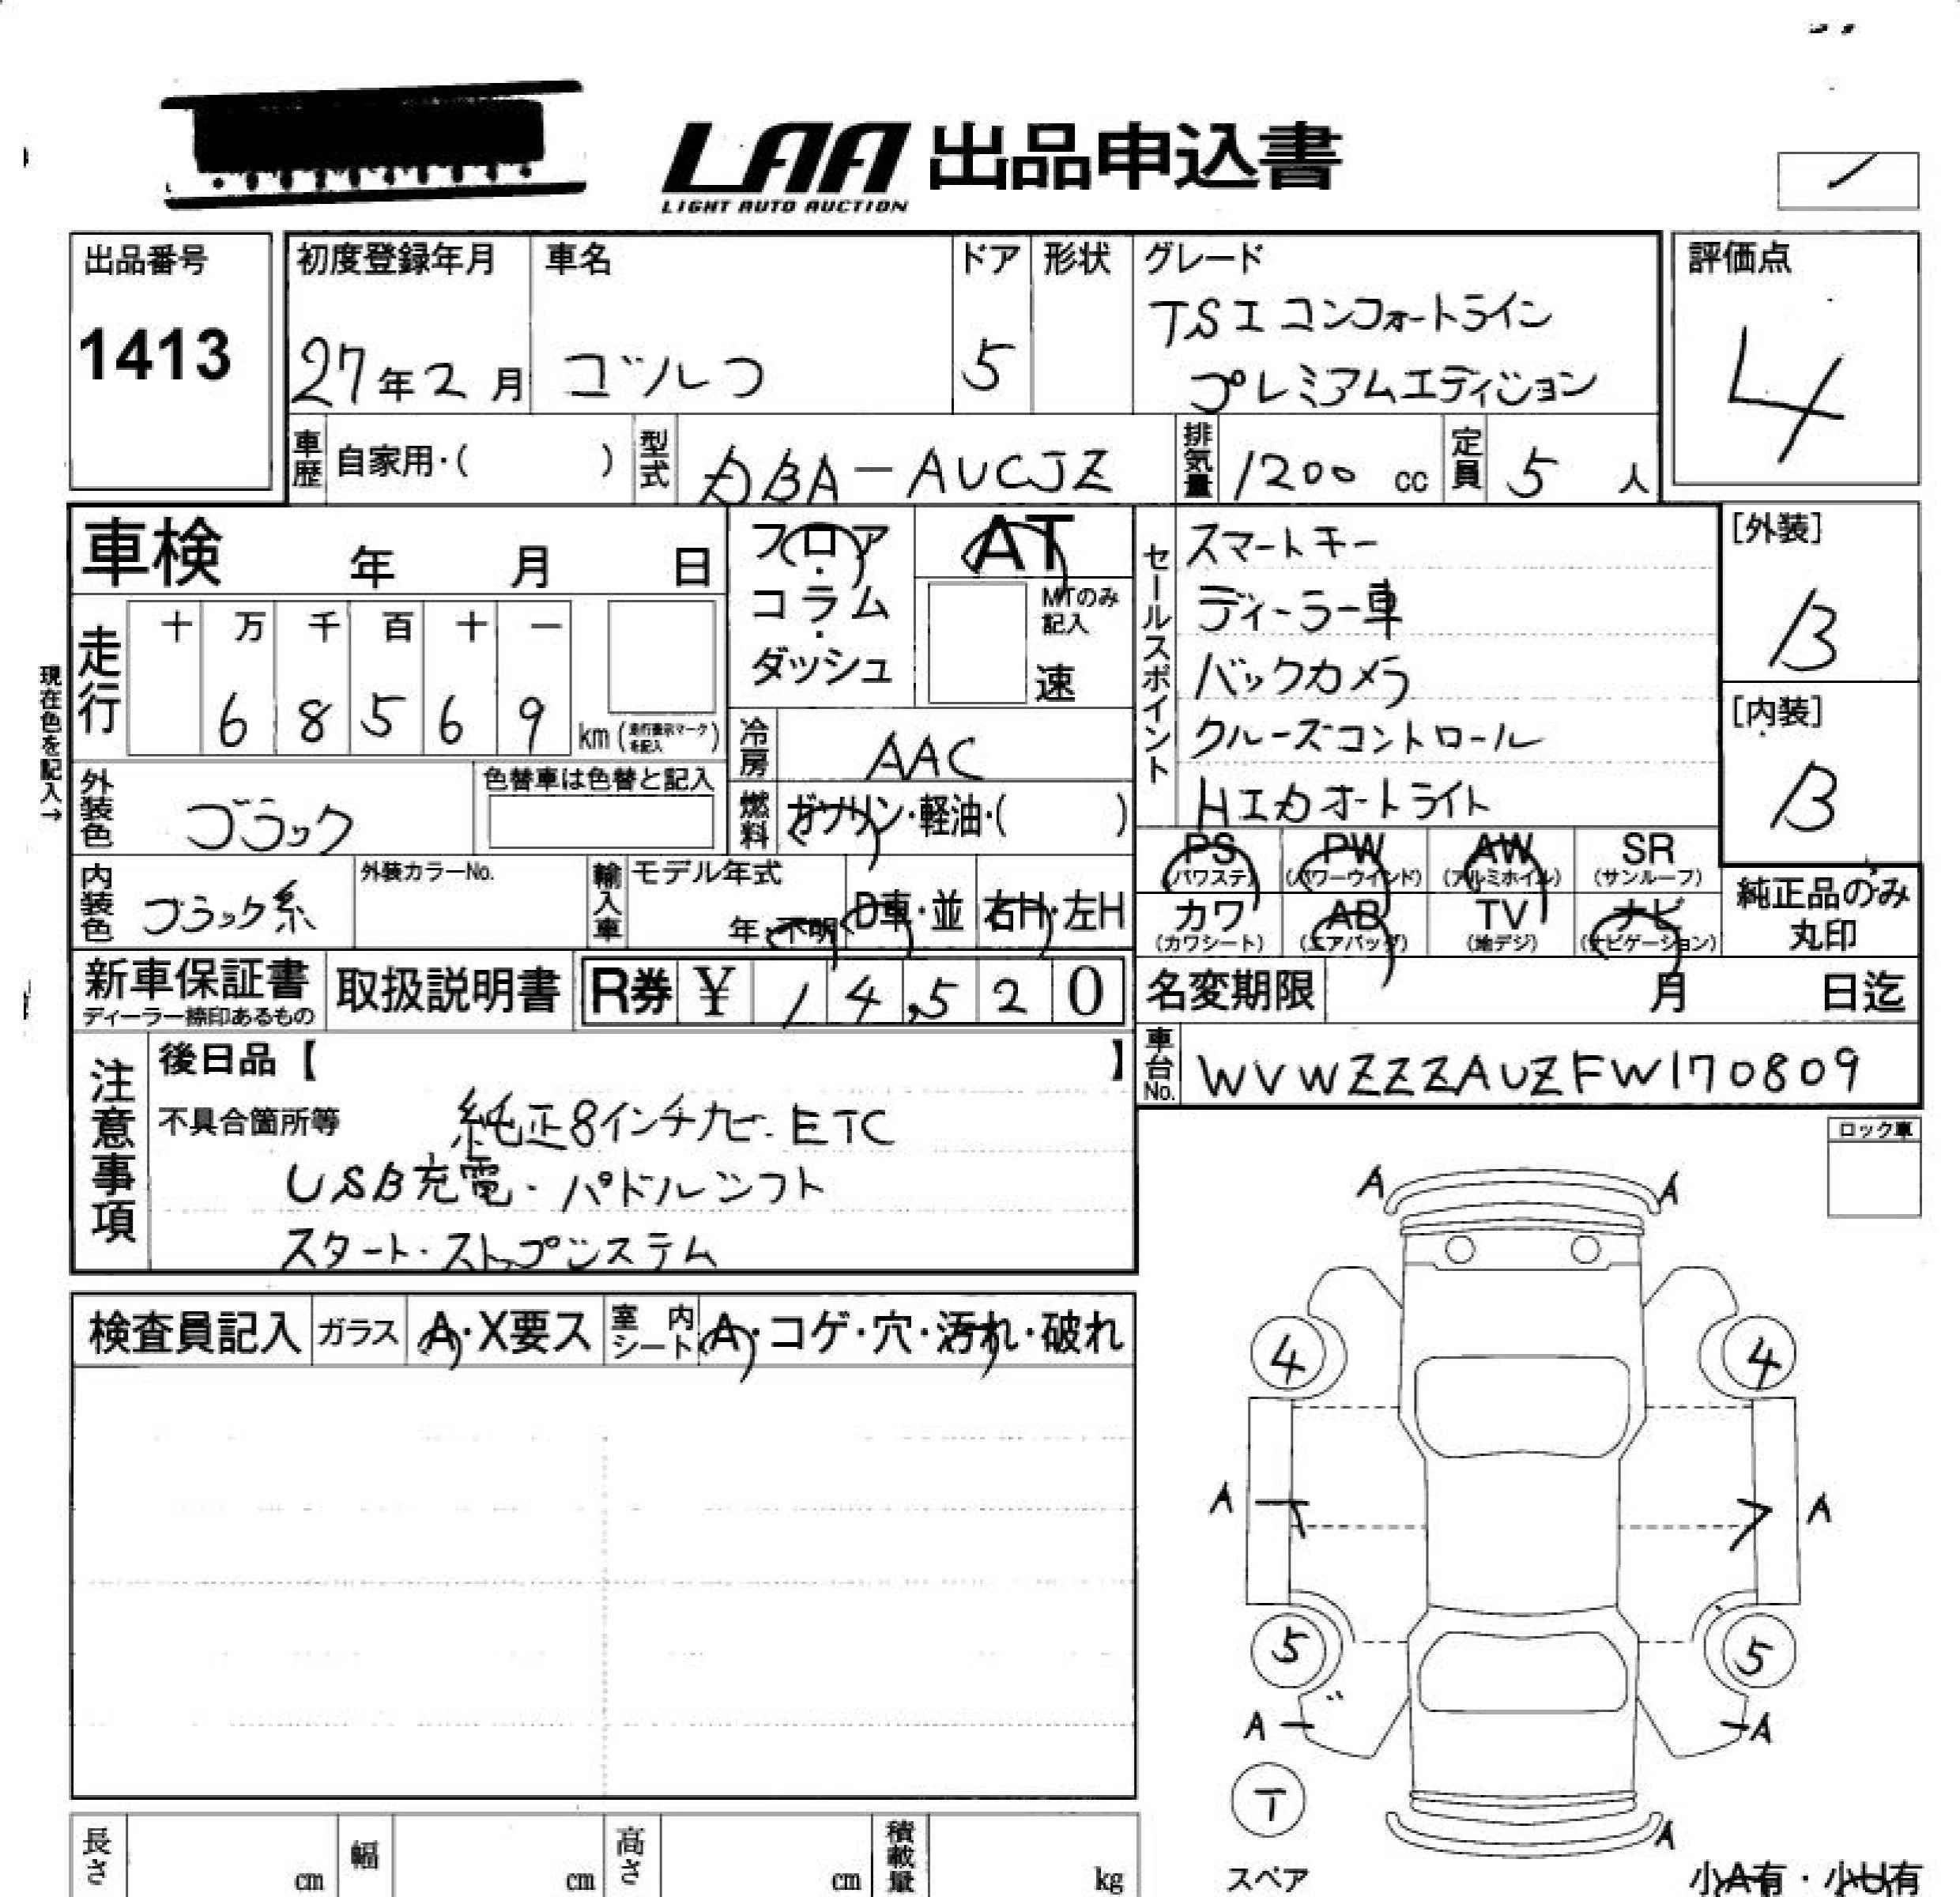 LAA 出品申込書
LIGHT AUTO AUCTION
出品番号
1413
初度登録年月
27年2月
車名
ゴルフ
ドア
5
形状
グレード
TSIコンフォートライン
プレミアムエディション
評価点
4
車歴 自家用・( )
型式 DBA-AUCJZ
排気量 1200 cc
定員 5 人
車検 年 月 日
走行
十 万 千 百 十 一
6 8 5 6 9 km(走行表示マークを記入)
現在色を記入→
外装色 ブラック
色替車は色替と記入
内装色 ブラック系
外装カラーNo.
フロア・コラム・ダッシュ
AT
MTのみ記入
速
冷房 AAC
燃料 ガソリン・軽油・( )
輸入車 モデル年式
年・不明 D車・並 右H・左H
セールスポイント
スマートキー
ディーラー車
バックカメラ
クルーズコントロール
HIDオートライト
[外装]
B
[内装]
B
PS(パワステ) PW(パワーウインド) AW(アルミホイル) SR(サンルーフ)
カワ(カワシート) AB(エアバッグ) TV(地デジ) ナビ(ナビゲーション)
純正品のみ
丸印
新車保証書
ディーラー捺印あるもの
取扱説明書
R券 ¥ 14,520
名変期限 月 日迄
車台No. WVWZZZAUZFW170809
注意事項
後日品【 】
不具合箇所等 純正8インチナビ・ETC
USB充電・パドルシフト
スタート・ストップシステム
ロック車
検査員記入 ガラス A・X要ス 室内シート A・コゲ・穴・汚れ・破れ
A A
4 4
A A
5 5
A A
T
A
スペア
小A有・小U有
長さ cm 幅 cm 高さ cm 積載量 kg